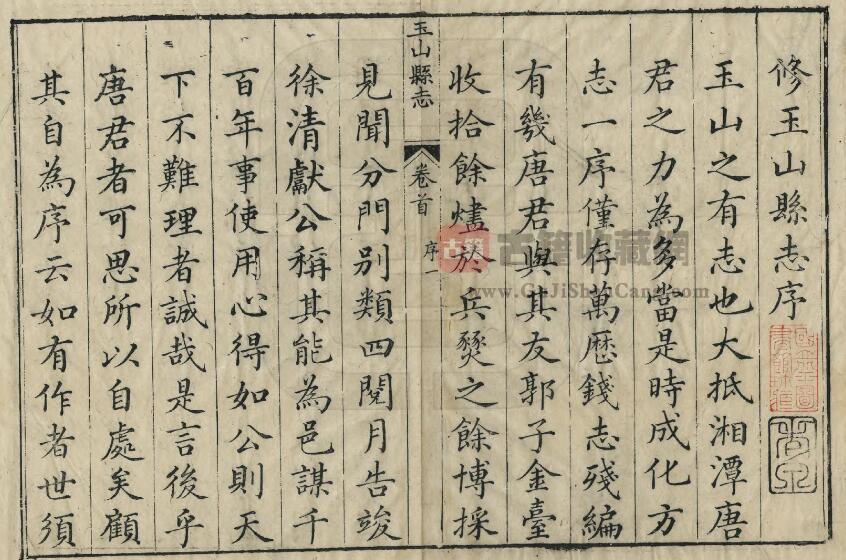 修玉山縣志序
玉山之有志也大抵湘潭唐
君之力為多當是時成化方
志一序僅存萬厯錢志殘編
有幾唐君與其友郭子金臺
收拾餘燼於兵燹之餘博採
玉山縣志
卷首
序一
見聞分門別類四閱月告竣
徐清獻公稱其能為邑謀千
百年事使用心得如公則天
下不難理者誠哉是言後乎
唐君者可思所以自處矣顧
其自為序云如有作者世須
古籍
古籍收藏網
www.GuJiShouCang.com